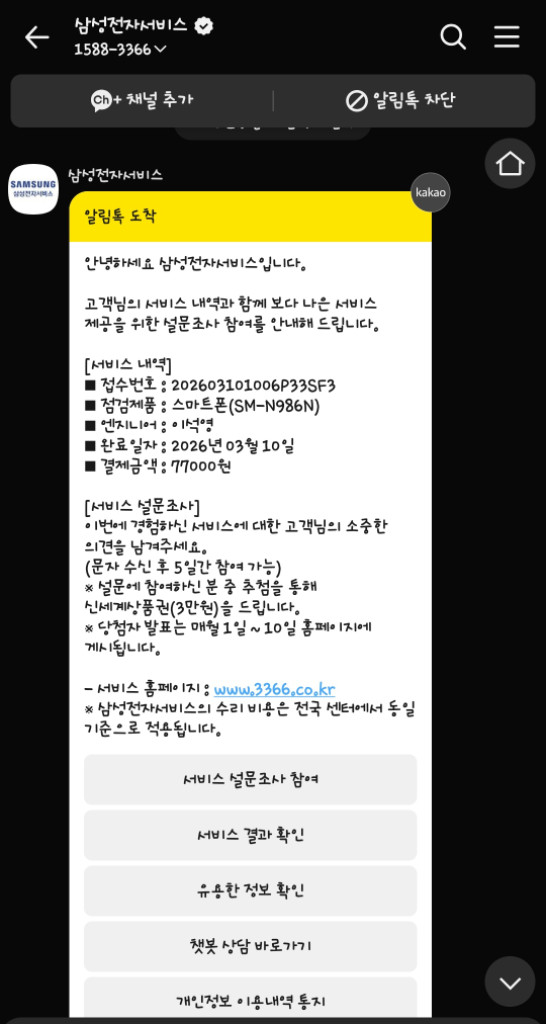 삼성전자서비스
1588-3366
Ch+ 채널 추가
알림톡 차단
SAMSUNG
삼성전자서비스
삼성전자서비스
kakao
알림톡 도착
안녕하세요 삼성전자서비스입니다.
고객님의 서비스 내역과 함께 보다 나은 서비스
제공을 위한 설문조사 참여를 안내해 드립니다.
[서비스 내역]
■ 접수번호 : 202603101006P33SF3
■ 점검제품 : 스마트폰(SM-N986N)
■ 엔지니어 : 이석영
■ 완료일자 : 2026년 03월 10일
■ 결제금액 : 77000원
[서비스 설문조사]
이번에 경험하신 서비스에 대한 고객님의 소중한
의견을 남겨주세요.
(문자 수신 후 5일간 참여 가능)
※ 설문에 참여하신 분 중 추첨을 통해
신세계상품권(3만원)을 드립니다.
※ 당첨자 발표는 매월 1일 ~ 10일 홈페이지에
게시됩니다.
- 서비스 홈페이지 : www.3366.co.kr
※ 삼성전자서비스의 수리 비용은 전국 센터에서 동일
기준으로 적용됩니다.
서비스 설문조사 참여
서비스 결과 확인
유용한 정보 확인
챗봇 상담 바로가기
개인정보 이용내역 통지